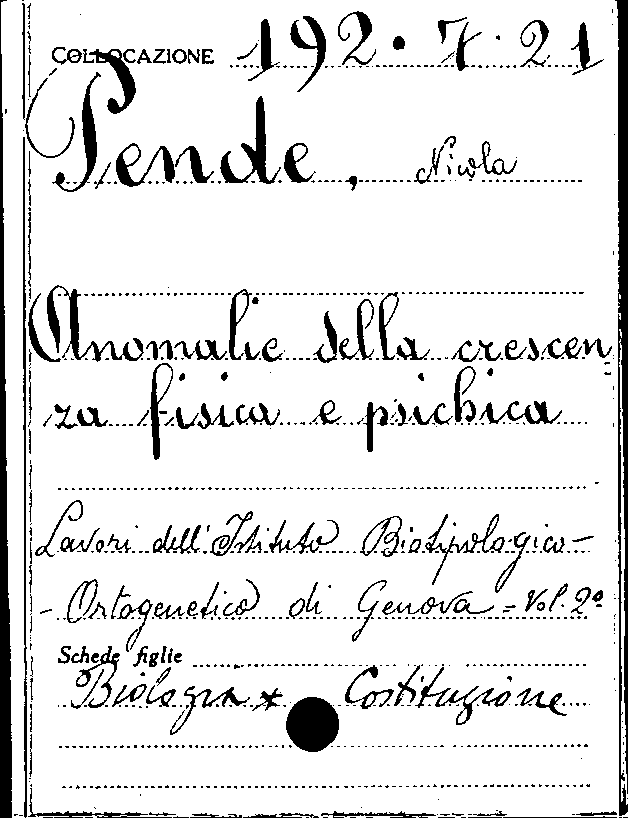 COLLOCAZIONE 192.7.21
Pende, Nicola
Anomalie della crescen
za fisica e psichica
Lavori dell'Istituto Biotipologico-
- Ortogenetico di Genova = Vol. 2º
Schede figlie
Biologia x Costituzione